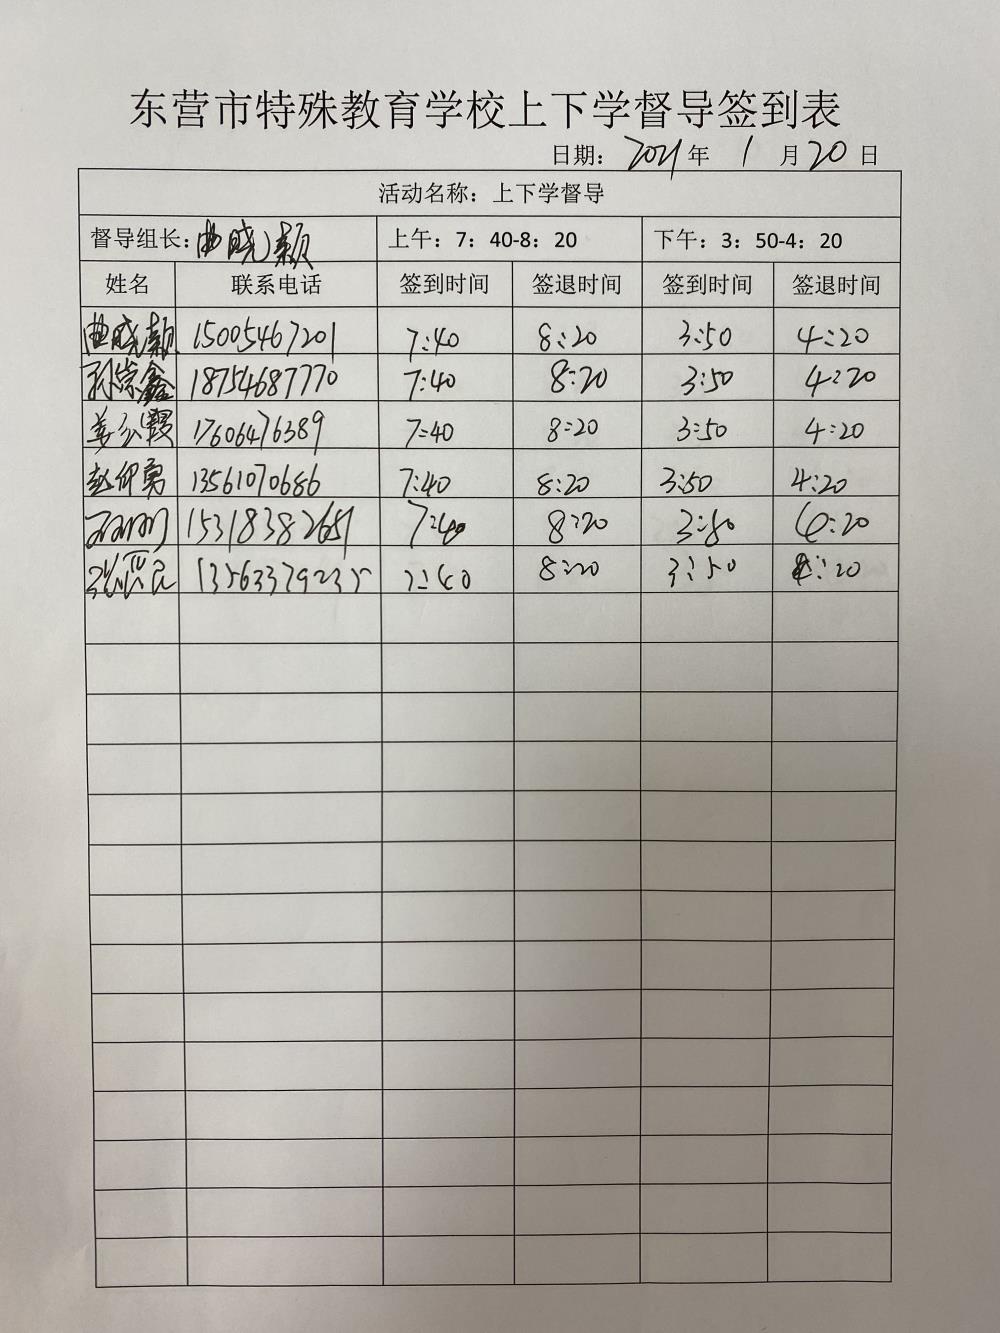 东营市特殊教育学校上下学督导签到表
日期： 2021 年 1 月 20 日
活动名称：上下学督导
督导组长：曲晓颖 上午：7：40-8：20 下午：3：50-4：20
姓名 联系电话 签到时间 签退时间 签到时间 签退时间
曲晓颖 15005467201 7:40 8:20 3:50 4:20
孙崇鑫 18754687770 7:40 8:20 3:50 4:20
姜公霞 17606476389 7:40 8:20 3:50 4:20
赵仰勇 13561070686 7:40 8:20 3:50 4:20
15318382651 7:40 8:20 3:50 4:20
13563379235 7:40 8:20 3:50 4:20